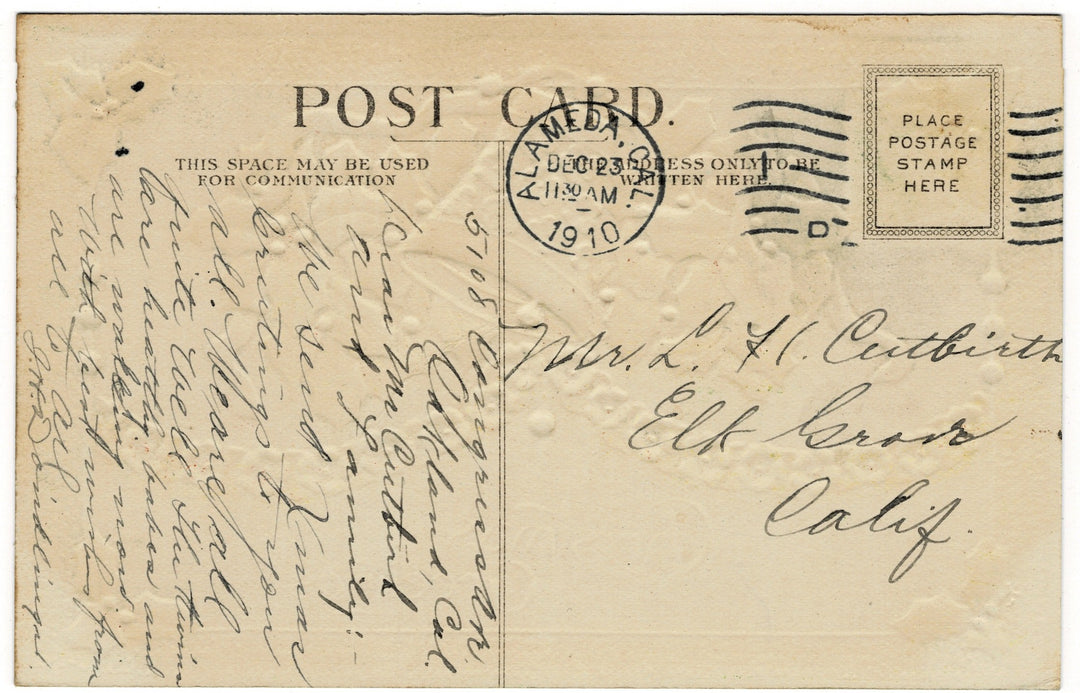 POST CARD.
THIS SPACE MAY BE USED
FOR COMMUNICATION
ADDRESS ONLY TO BE
WRITTEN HERE.
PLACE
POSTAGE
STAMP
HERE
ALAMEDA, CAL.
DEC 23
11 30 AM
1910
1
D
Mr. L. H. Cutbirth
Elk Grove
Calif.
5108 Congress Av.
Oakland, Cal.
Dear Mr Cutbird
and Family:-
We send Xmas
Greetings to you
all. We are all
quite well. The twins
are healthy babes and
are walking now.
With best wishes from
all to all